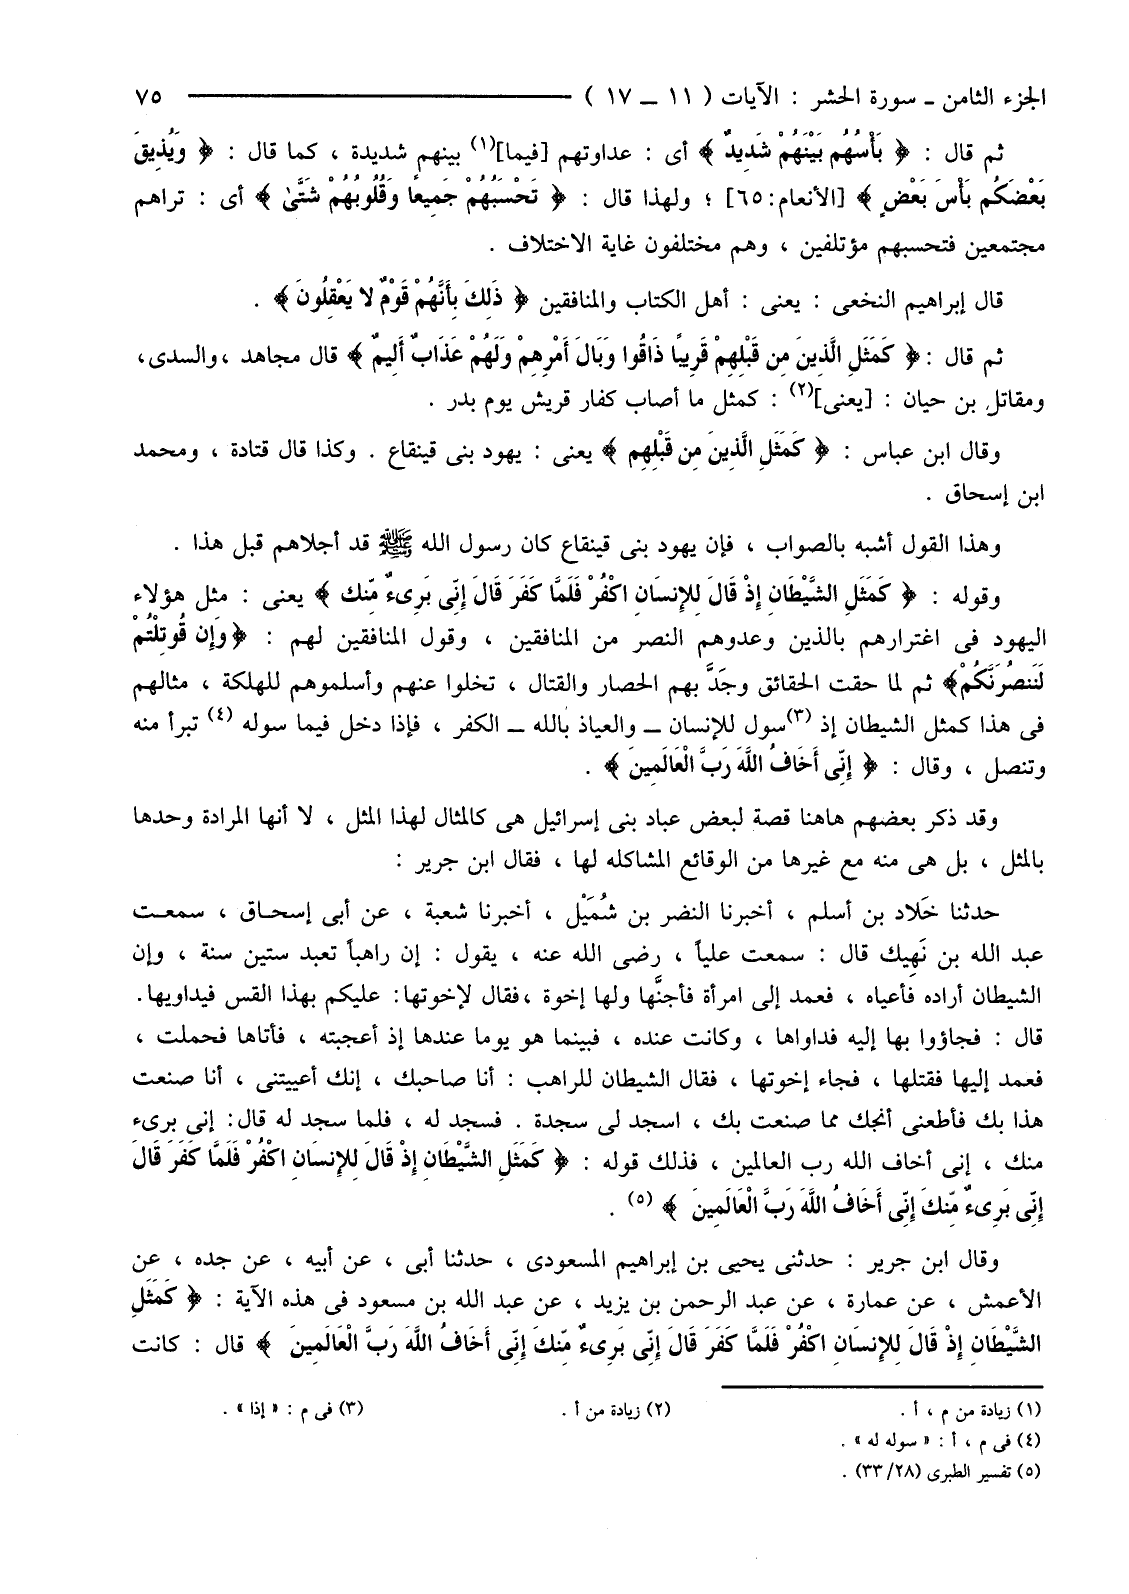 الجزء الثامن ـ سورة الحشر : الآيات ( ١١ ـ ١٧ ) ٧٥
ثم قال : ﴿ بَأْسُهُم بَيْنَهُمْ شَدِيدٌ ﴾ أى : عداوتهم [فيما](١) بينهم شديدة ، كما قال : ﴿ وَيُذِيقَ
بَعْضَكُم بَأْسَ بَعْضٍ ﴾ [الأنعام:٦٥] ؛ ولهذا قال : ﴿ تَحْسَبُهُمْ جَمِيعًا وَقُلُوبُهُمْ شَتَّىٰ ﴾ أى : تراهم
مجتمعين فتحسبهم مؤتلفين ، وهم مختلفون غاية الاختلاف .
قال إبراهيم النخعى : يعنى : أهل الكتاب والمنافقين ﴿ ذَلِكَ بِأَنَّهُمْ قَوْمٌ لا يَعْقِلُونَ ﴾ .
ثم قال :﴿ كَمَثَلِ الَّذِينَ مِن قَبْلِهِمْ قَرِيبًا ذَاقُوا وَبَالَ أَمْرِهِمْ وَلَهُمْ عَذَابٌ أَلِيمٌ ﴾ قال مجاهد ،والسدى،
ومقاتل بن حيان : [يعنى](٢) : كمثل ما أصاب كفار قريش يوم بدر .
وقال ابن عباس : ﴿ كَمَثَلِ الَّذِينَ مِن قَبْلِهِم ﴾ يعنى : يهود بنى قينقاع . وكذا قال قتادة ، ومحمد
ابن إسحاق .
وهذا القول أشبه بالصواب ، فإن يهود بنى قينقاع كان رسول الله ﷺ قد أجلاهم قبل هذا .
وقوله : ﴿ كَمَثَلِ الشَّيْطَانِ إِذْ قَالَ لِلإِنسَانِ اكْفُرْ فَلَمَّا كَفَرَ قَالَ إِنِّى بَرِىءٌ مِّنكَ ﴾ يعنى : مثل هؤلاء
اليهود فى اغترارهم بالذين وعدوهم النصر من المنافقين ، وقول المنافقين لهم : ﴿وَإِن قُوتِلْتُمْ
لَنَنصُرَنَّكُمْ﴾ ثم لما حقت الحقائق وجَدَّ بهم الحصار والقتال ، تخلوا عنهم وأسلموهم للهلكة ، مثالهم
فى هذا كمثل الشيطان إذ (٣)سول للإنسان ــ والعياذ بالله ــ الكفر ، فإذا دخل فيما سوله (٤) تبرأ منه
وتنصل ، وقال : ﴿ إِنِّى أَخَافُ اللَّهَ رَبَّ الْعَالَمِينَ ﴾ .
وقد ذكر بعضهم هاهنا قصة لبعض عباد بنى إسرائيل هى كالمثال لهذا المثل ، لا أنها المرادة وحدها
بالمثل ، بل هى منه مع غيرها من الوقائع المشاكله لها ، فقال ابن جرير :
حدثنا خَلاد بن أسلم ، أخبرنا النضر بن شُمَيْل ، أخبرنا شعبة ، عن أبى إسحاق ، سمعت
عبد الله بن نَهِيك قال : سمعت علياً ، رضى الله عنه ، يقول : إن راهباً تعبد ستين سنة ، وإن
الشيطان أراده فأعياه ، فعمد إلى امرأة فأجنَّها ولها إخوة ،فقال لإخوتها: عليكم بهذا القس فيداويها.
قال : فجاؤوا بها إليه فداواها ، وكانت عنده ، فبينما هو يوما عندها إذ أعجبته ، فأتاها فحملت ،
فعمد إليها فقتلها ، فجاء إخوتها ، فقال الشيطان للراهب : أنا صاحبك ، إنك أعييتنى ، أنا صنعت
هذا بك فأطعنى أنجك مما صنعت بك ، اسجد لى سجدة . فسجد له ، فلما سجد له قال: إنى برىء
منك ، إنى أخاف الله رب العالمين ، فذلك قوله : ﴿ كَمَثَلِ الشَّيْطَانِ إِذْ قَالَ لِلإِنسَانِ اكْفُرْ فَلَمَّا كَفَرَ قَالَ
إِنِّى بَرِىءٌ مِّنكَ إِنِّى أَخَافُ اللَّهَ رَبَّ الْعَالَمِينَ ﴾ (٥) .
وقال ابن جرير : حدثنى يحيى بن إبراهيم المسعودى ، حدثنا أبى ، عن أبيه ، عن جده ، عن
الأعمش ، عن عمارة ، عن عبد الرحمن بن يزيد ، عن عبد الله بن مسعود فى هذه الآية : ﴿ كَمَثَلِ
الشَّيْطَانِ إِذْ قَالَ لِلإِنسَانِ اكْفُرْ فَلَمَّا كَفَرَ قَالَ إِنِّى بَرِىءٌ مِّنكَ إِنِّى أَخَافُ اللَّهَ رَبَّ الْعَالَمِينَ ﴾ قال : كانت
(١) زيادة من م ، أ . (٢) زيادة من أ . (٣) فى م : « إذا » .
(٤) فى م ، أ : « سوله له » .
(٥) تفسير الطبرى (٣٣/٢٨) .